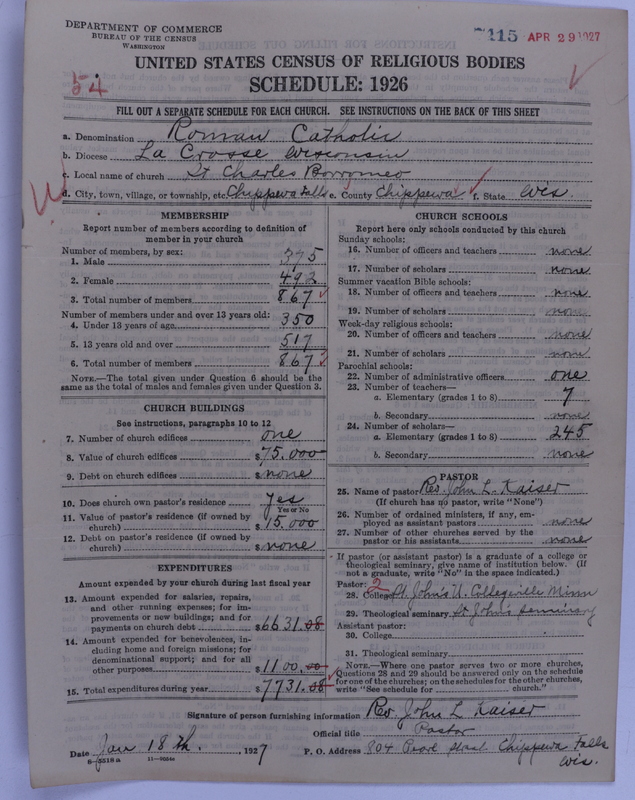 DEPARTMENT OF COMMERCE
BUREAU OF THE CENSUS
WASHINGTON
7115 APR 29 1927
UNITED STATES CENSUS OF RELIGIOUS BODIES
SCHEDULE: 1926
54
FILL OUT A SEPARATE SCHEDULE FOR EACH CHURCH. SEE INSTRUCTIONS ON THE BACK OF THIS SHEET
a. Denomination Roman Catholic
b. Diocese La Crosse Wisconsin
c. Local name of church St Charles Borromeo
d. City, town, village, or township, etc. Chippewa Falls e. County Chippewa f. State Wis.
MEMBERSHIP
Report number of members according to definition of
member in your church
Number of members, by sex:
1. Male 375
2. Female 492
3. Total number of members 867
Number of members under and over 13 years old:
4. Under 13 years of age 350
5. 13 years old and over 517
6. Total number of members 867
NOTE.—The total given under Question 6 should be the
same as the total of males and females given under Question 3.
CHURCH BUILDINGS
See instructions, paragraphs 10 to 12
7. Number of church edifices one
8. Value of church edifices $75.000
9. Debt on church edifices $ none
10. Does church own pastor's residence yes
Yes or No
11. Value of pastor's residence (if owned by
church) $15.000
12. Debt on pastor's residence (if owned by
church) $ none
EXPENDITURES
Amount expended by your church during last fiscal year
13. Amount expended for salaries, repairs,
and other running expenses; for im-
provements or new buildings; and for
payments on church debt $6631.08
14. Amount expended for benevolences, in-
cluding home and foreign missions; for
denominational support; and for all
other purposes $1100.00
15. Total expenditures during year $7731.08
CHURCH SCHOOLS
Report here only schools conducted by this church
Sunday schools:
16. Number of officers and teachers none
17. Number of scholars none
Summer vacation Bible schools:
18. Number of officers and teachers none
19. Number of scholars none
Week-day religious schools:
20. Number of officers and teachers none
21. Number of scholars none
Parochial schools:
22. Number of administrative officers one
23. Number of teachers—
a. Elementary (grades 1 to 8) 7
b. Secondary none
24. Number of scholars—
a. Elementary (grades 1 to 8) 245
b. Secondary none
PASTOR
25. Name of pastor Rev. John L. Kaiser
(If church has no pastor, write "None")
26. Number of ordained ministers, if any, em-
ployed as assistant pastors none
27. Number of other churches served by the
pastor or his assistants none
If pastor (or assistant pastor) is a graduate of a college or
theological seminary, give name of institution below. (If
not a graduate, write "No" in the space indicated.)
Pastor: 2
28. College St. John's U. Collegeville Minn
29. Theological seminary St John's Seminary
Assistant pastor:
30. College
31. Theological seminary
NOTE.—Where one pastor serves two or more churches,
Questions 28 and 29 should be answered only on the schedule
for one of the churches; on the schedules for the other churches,
write "See schedule for church."
Signature of person furnishing information Rev. John L Kaiser
Official title Pastor
Date Jan 18th. 1927 P. O. Address 804 Pearl Street Chippewa Falls
Wis.
8-5518 a